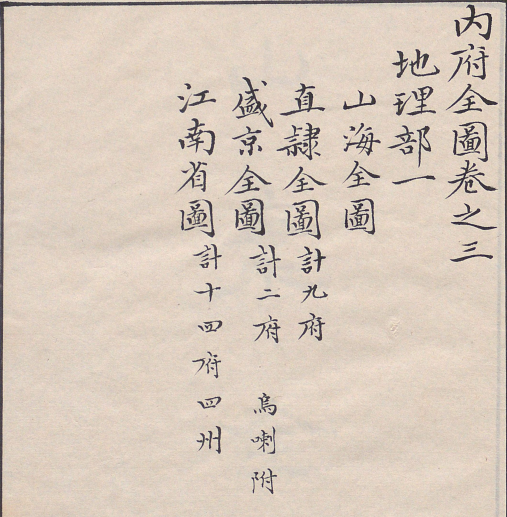 內府全圖卷之三
地理部一
山海全圖
直隸全圖計九府
盛京全圖計二府 烏喇附
江南省圖計十四府四州